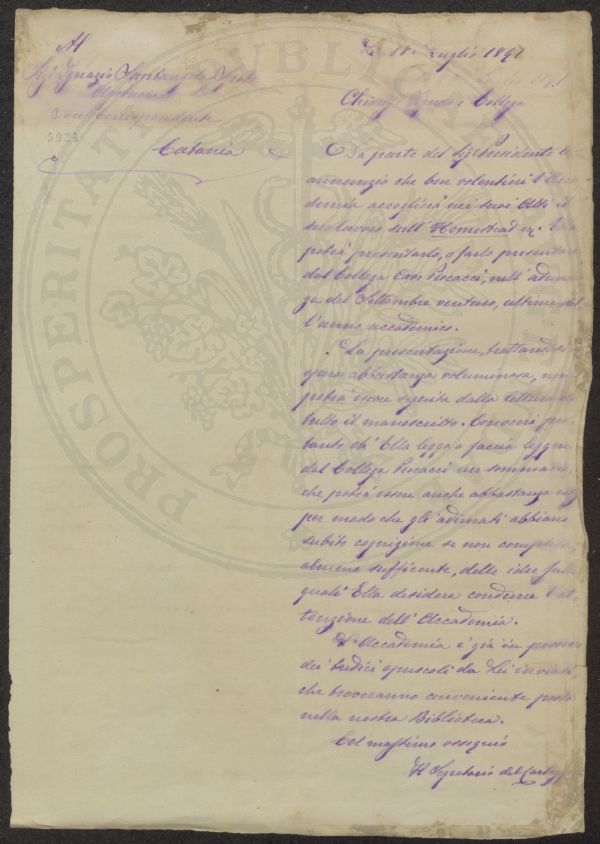 Al
Sigr Ignazio Santangelo Spoto
Socio Corrispondente
5924
Catania
Li 18 Luglio 1891
Chiarissimo e Collega
Da parte del Sig. Presidente Le
annunzio che ben volentieri l'Acca
demia accoglierà nei suoi Atti il
suo lavoro sull'Homestead
potrà presentarlo, o farlo presentare
dal Collega Cav. Pecacci, nell'aduna
za del Settembre venturo, ultima del
l'anno accademico.
La presentazione, trattandosi
opera abbastanza voluminosa, non
potrà essere seguita dalla lettura di
tutto il manoscritto. Converrà per
tanto ch'Ella legga o faccia leggere
dal Collega Pecacci un sommario,
che potrà essere anche abbastanza
per modo che gli adunati abbiano
subito cognizione se non completa,
almeno sufficente, delle idee sulle
quali Ella desidera condurre l'at
tenzione dell'Accademia.
L'Accademia è già in possesso
dei tredici opuscoli da Lei inviati,
che troveranno conveniente posto
nella nostra Biblioteca.
Col massimo ossequio
Il Segretario del Carteggio
PROSPERITATI PUBLICAE